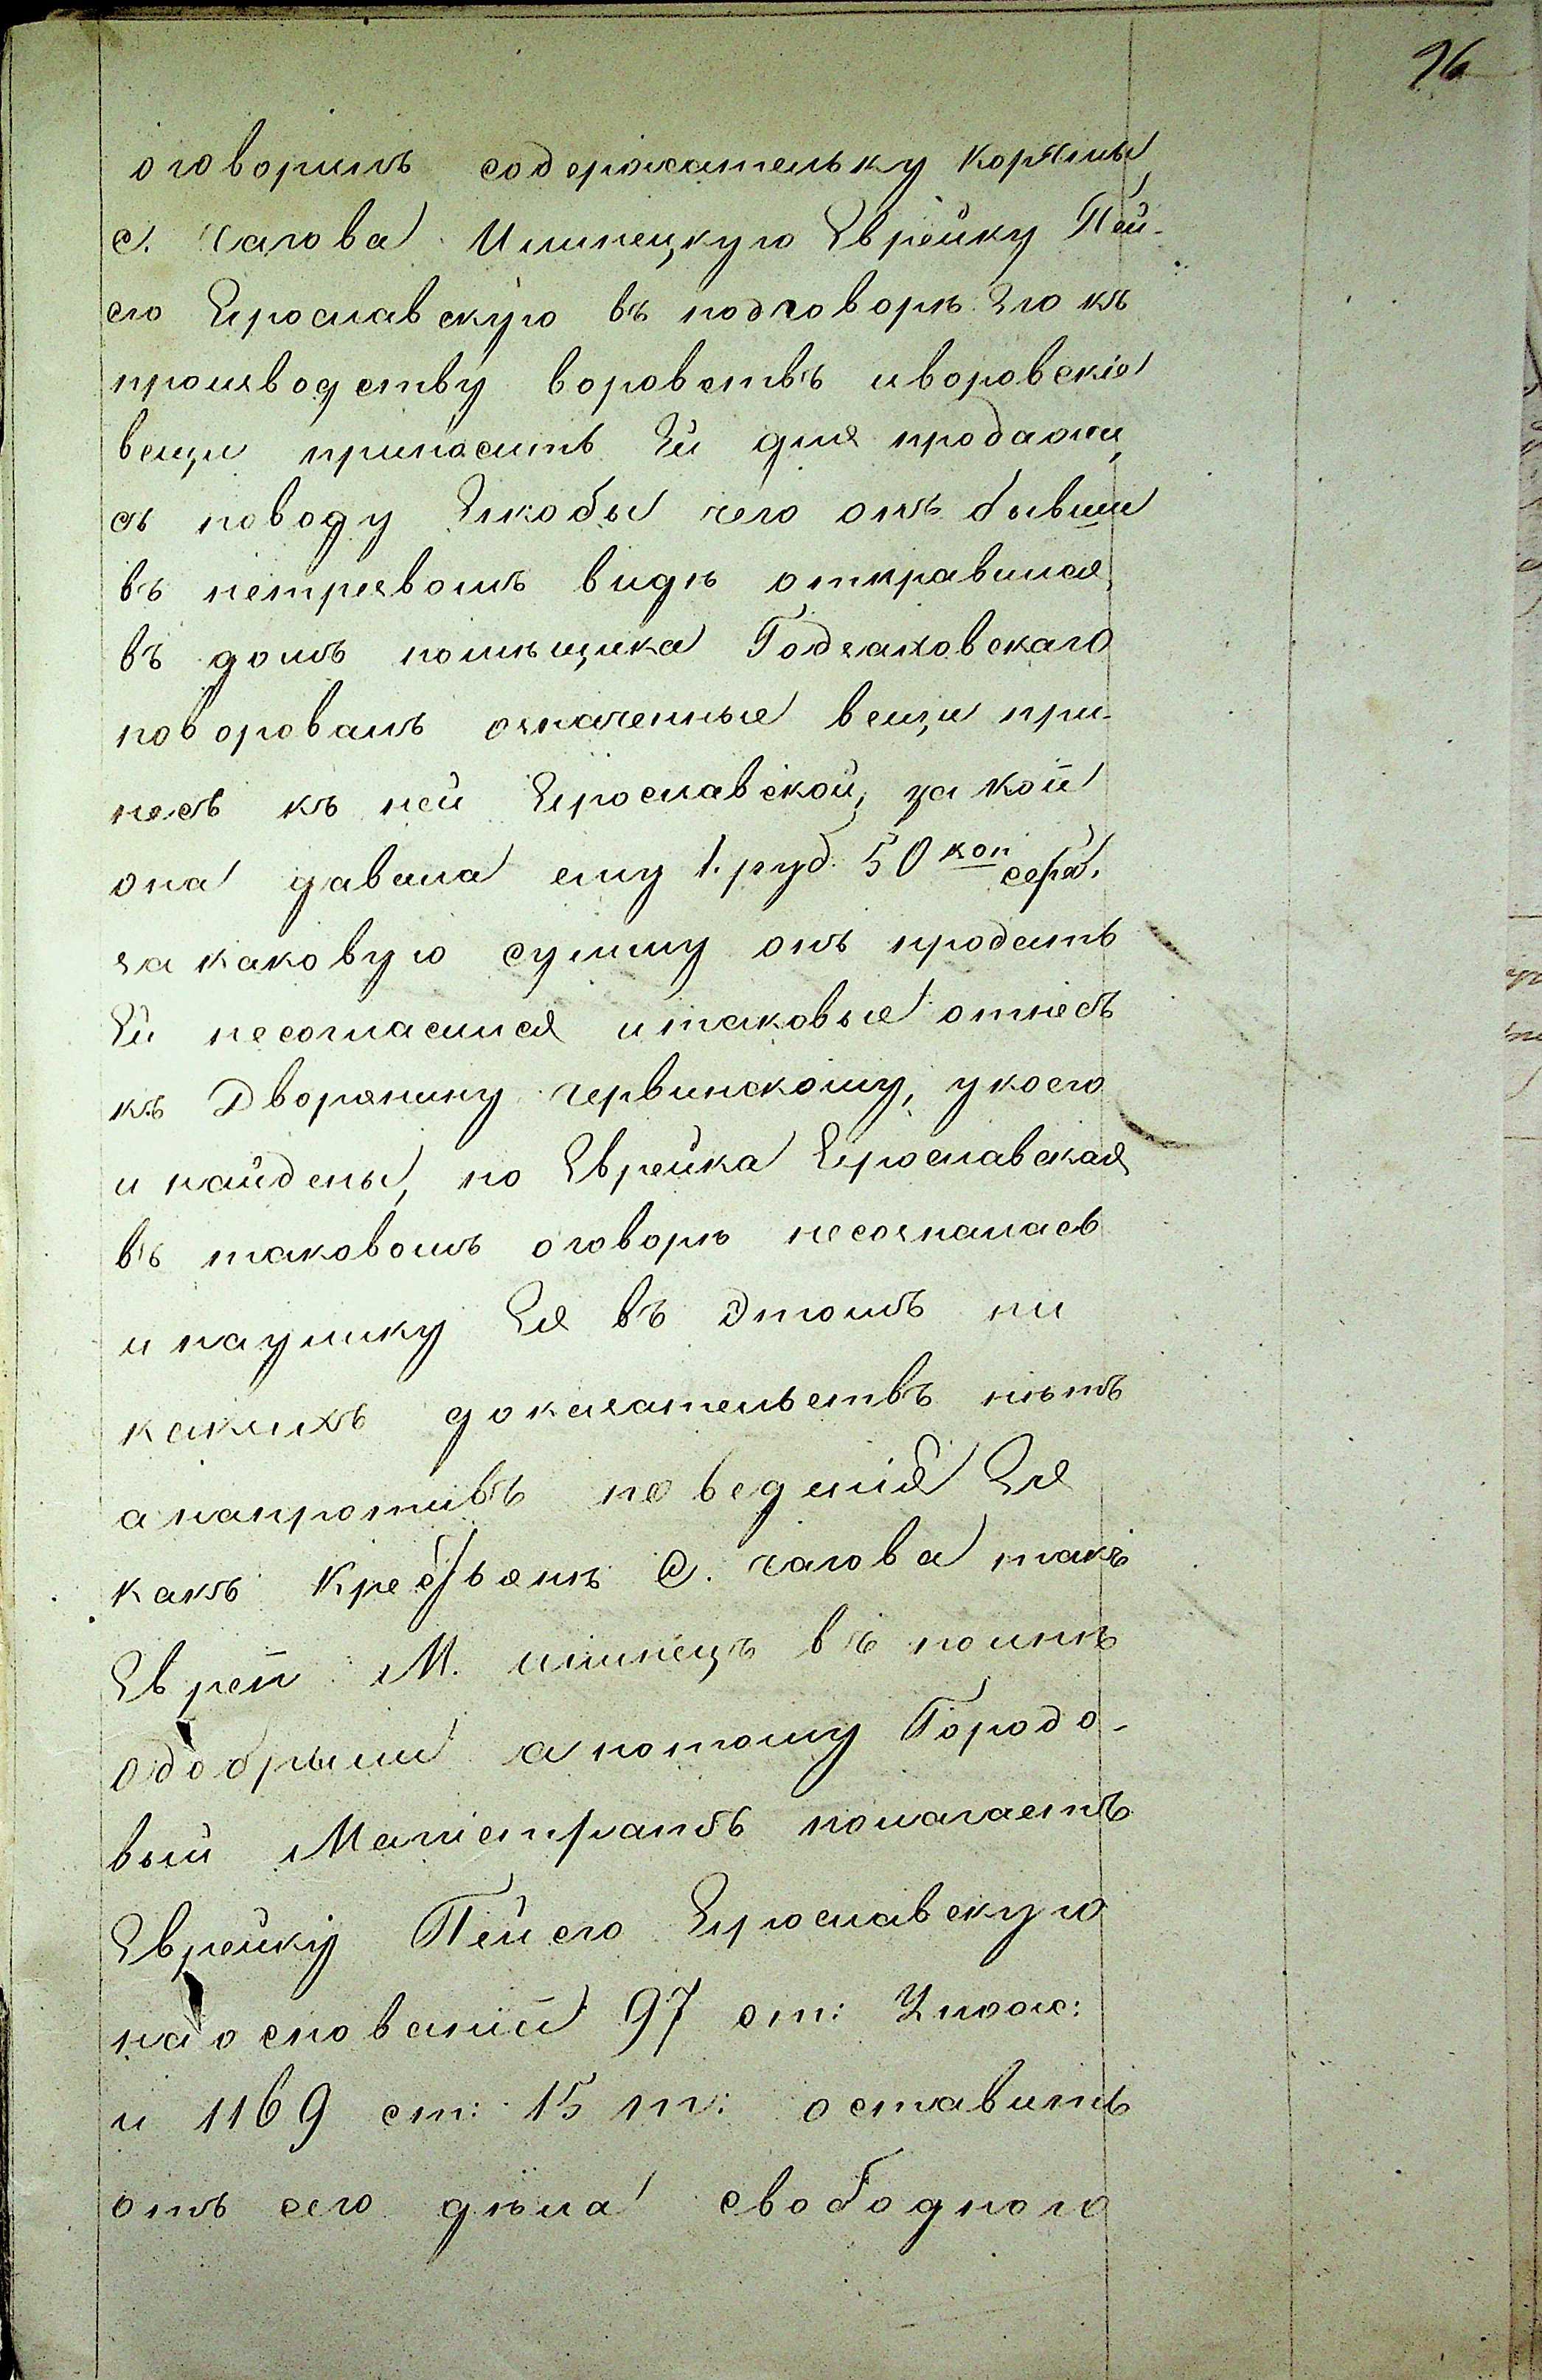 96
оговорилъ содержательку Корчмы
с. Чагова Илинецкую Еврейку Пей-
сю Ярославскую въ подговорѣ Его къ
производству воровствъ и воровскіе
вещи приносить Ей для продажи,
съ поводу Якобы чего онъ бывши
въ нетрезвомъ видѣ отправился
въ домъ помѣщика Годзяховскаго
поворовалъ означенные вещи при-
несъ къ ней Ярославской, за кои
она давала ему 1. руб 50 коп сереб.
за каковую сумму онъ продать
Ей несогласился и таковые отнесъ
къ Дворянину Червинскому, у коего
и найдены, но Еврейка Ярославская
въ таковомъ оговорѣ несозналась
и наулику Ея въ Этомъ ни
какихъ доказательствъ нѣтъ
а напротивъ поведѣнія Ея
какъ Крестьянѣ С. Чагова такъ
Евреи М. Илинецъ въ полнѣ
Одобрили а потому Городо-
вый Магістратъ полагаетъ
Еврейку Пейсю Ярославскую
на основаніи 97 ст: Улож:
и 1169 ст: 15 т: оставить
отъ сего дѣла свободною